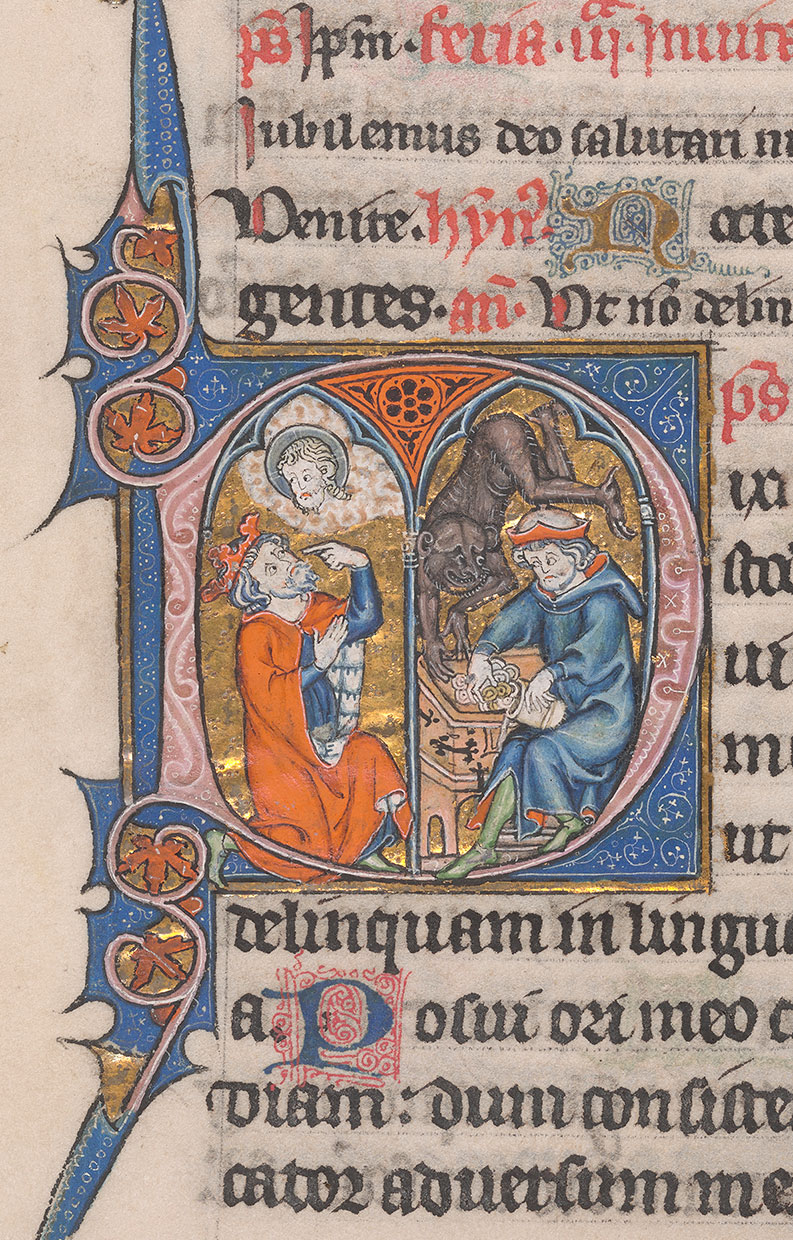 ps Ipm. feria. iii. Inuita
Iubilemus deo salutari n
Venite. hyn⁹. Nocte
gentes. an̄. Vt nō delin
ps
Dixi
sto
ui
m
ut
delinquam in lingua
a. Posui ori meo c
diam: dum consiste
cator aduersum me